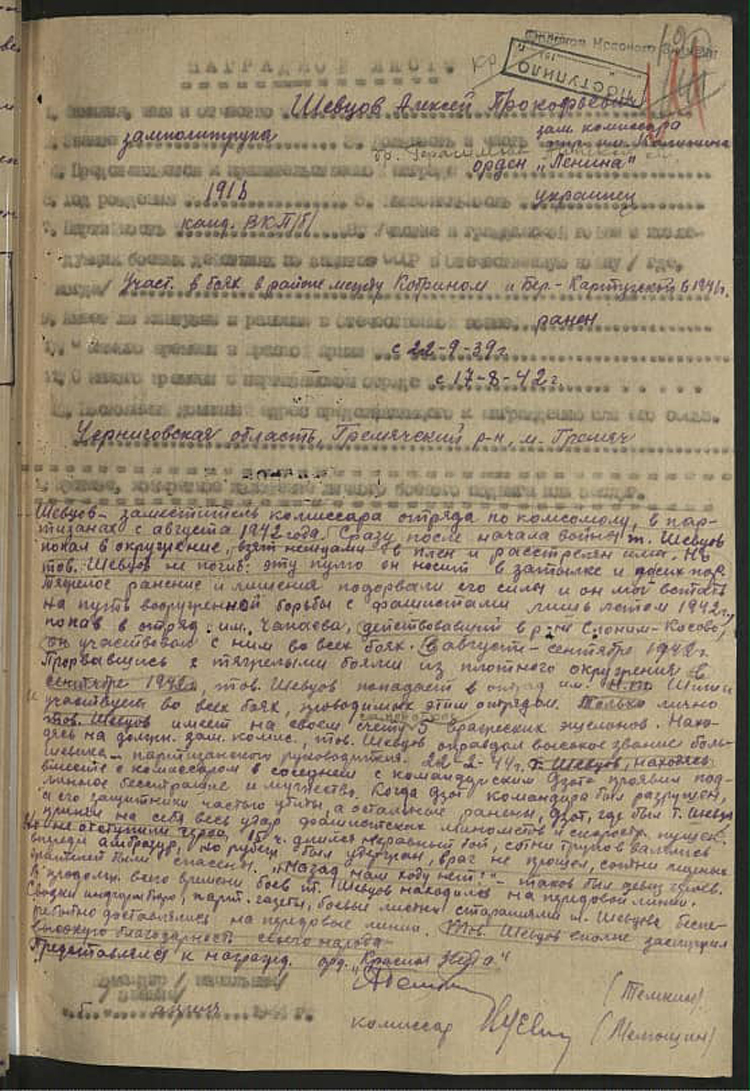 Орденом Красного Знамени
ПОСТУПИЛО
НАГРАДНОЙ ЛИСТ
1. Фамилия, имя и отчество Шевцов Алексей Прокофьевич
2. Звание замполитрука 3. Должность и часть зам. комиссара
бр.
4. Представляется к правительственной награде орден "Ленина"
5. Год рождения 191 6. Национальность украинец
7. Партийность канд. ВКП/б/ 8. Участие в гражданской войне и после-
дующих боевых действиях по защите СССР и Отечественную войну / где,
когда/ Участ. в боях в районе между Кобрином и Бер-Картузской в 1941г.
9. Имеет ли ранения в Отечественной войне ранен
10. С какого времени в Красной Армии с 22-9-39г.
11. С какого времени в партизанском отряде с 17-8-42г.
12. домашний адрес представляемого к награждению или его семьи.
Черниговская область, Гремячский р-н, м. Гремяч
1. Краткое, конкретное изложение личного боевого подвига или заслуг.
Шевцов - заместитель комиссара отряда по комсомолу, в пар-
тизанах с августа 1942 года. Сразу после начала войны т. Шевцов
попал в окружение, взят немцами в плен и расстрелян ими. Но
тов. Шевцов не погиб: эту пулю он носит в затылке и до сих пор.
Тяжелое ранение и лишения подорвали его силы и он мог встать
на путь вооруженной борьбы с фашистами лишь летом 1942г.,
попав в отряд им. Чапаева, действовавший в р-не Слоним-Косово,
он участвовал с ним во всех боях. В августе-сентябре 1942г.
Прорвавшись с тяжелыми боями из плотного окружения в
сентябре 1942г., тов. Шевцов попадает в отряд им.
и участвует во всех боях, проводимых этим отрядом. Только лично
тов. Шевцов имеет на своем счету 5 вражеских эшелонов. Нахо-
дясь на должн. зам. комис., тов. Шевцов оправдал высокое звание боль-
шевика - партизанского руководителя. 22-2-44г. т. Шевцов, находясь
вместе с комиссаром в соседнем с командирским дзоте проявил под-
линное бесстрашие и мужество. Когда дзот командира был разрушен,
а его защитники частью убиты, а остальные ранены, дзот, где был т. Шевцов
принял на себя весь удар фашистских минометов и скоростр. пушек.
Но не отступили герои. 15 ч. длился неравный бой, сотни трупов валялись
впереди амбразур, но рубеж был удержан, враг не прошел, сотни мирных
жителей были спасены. "Назад нам ходу нет!" - таков был девиз героев.
В продолж. всего времени боев т. Шевцов находился на передовой линии.
Сводки информбюро, парт. газеты, боевые листки стараниями т. Шевцова беспе-
ребойно доставлялись на передовые линии. Тов. Шевцов вполне заслужил
высокую благодарность своего народа.
Представляется к награде орд. "Красная Звезда"
(Темкин)
комиссар (Мемошин)